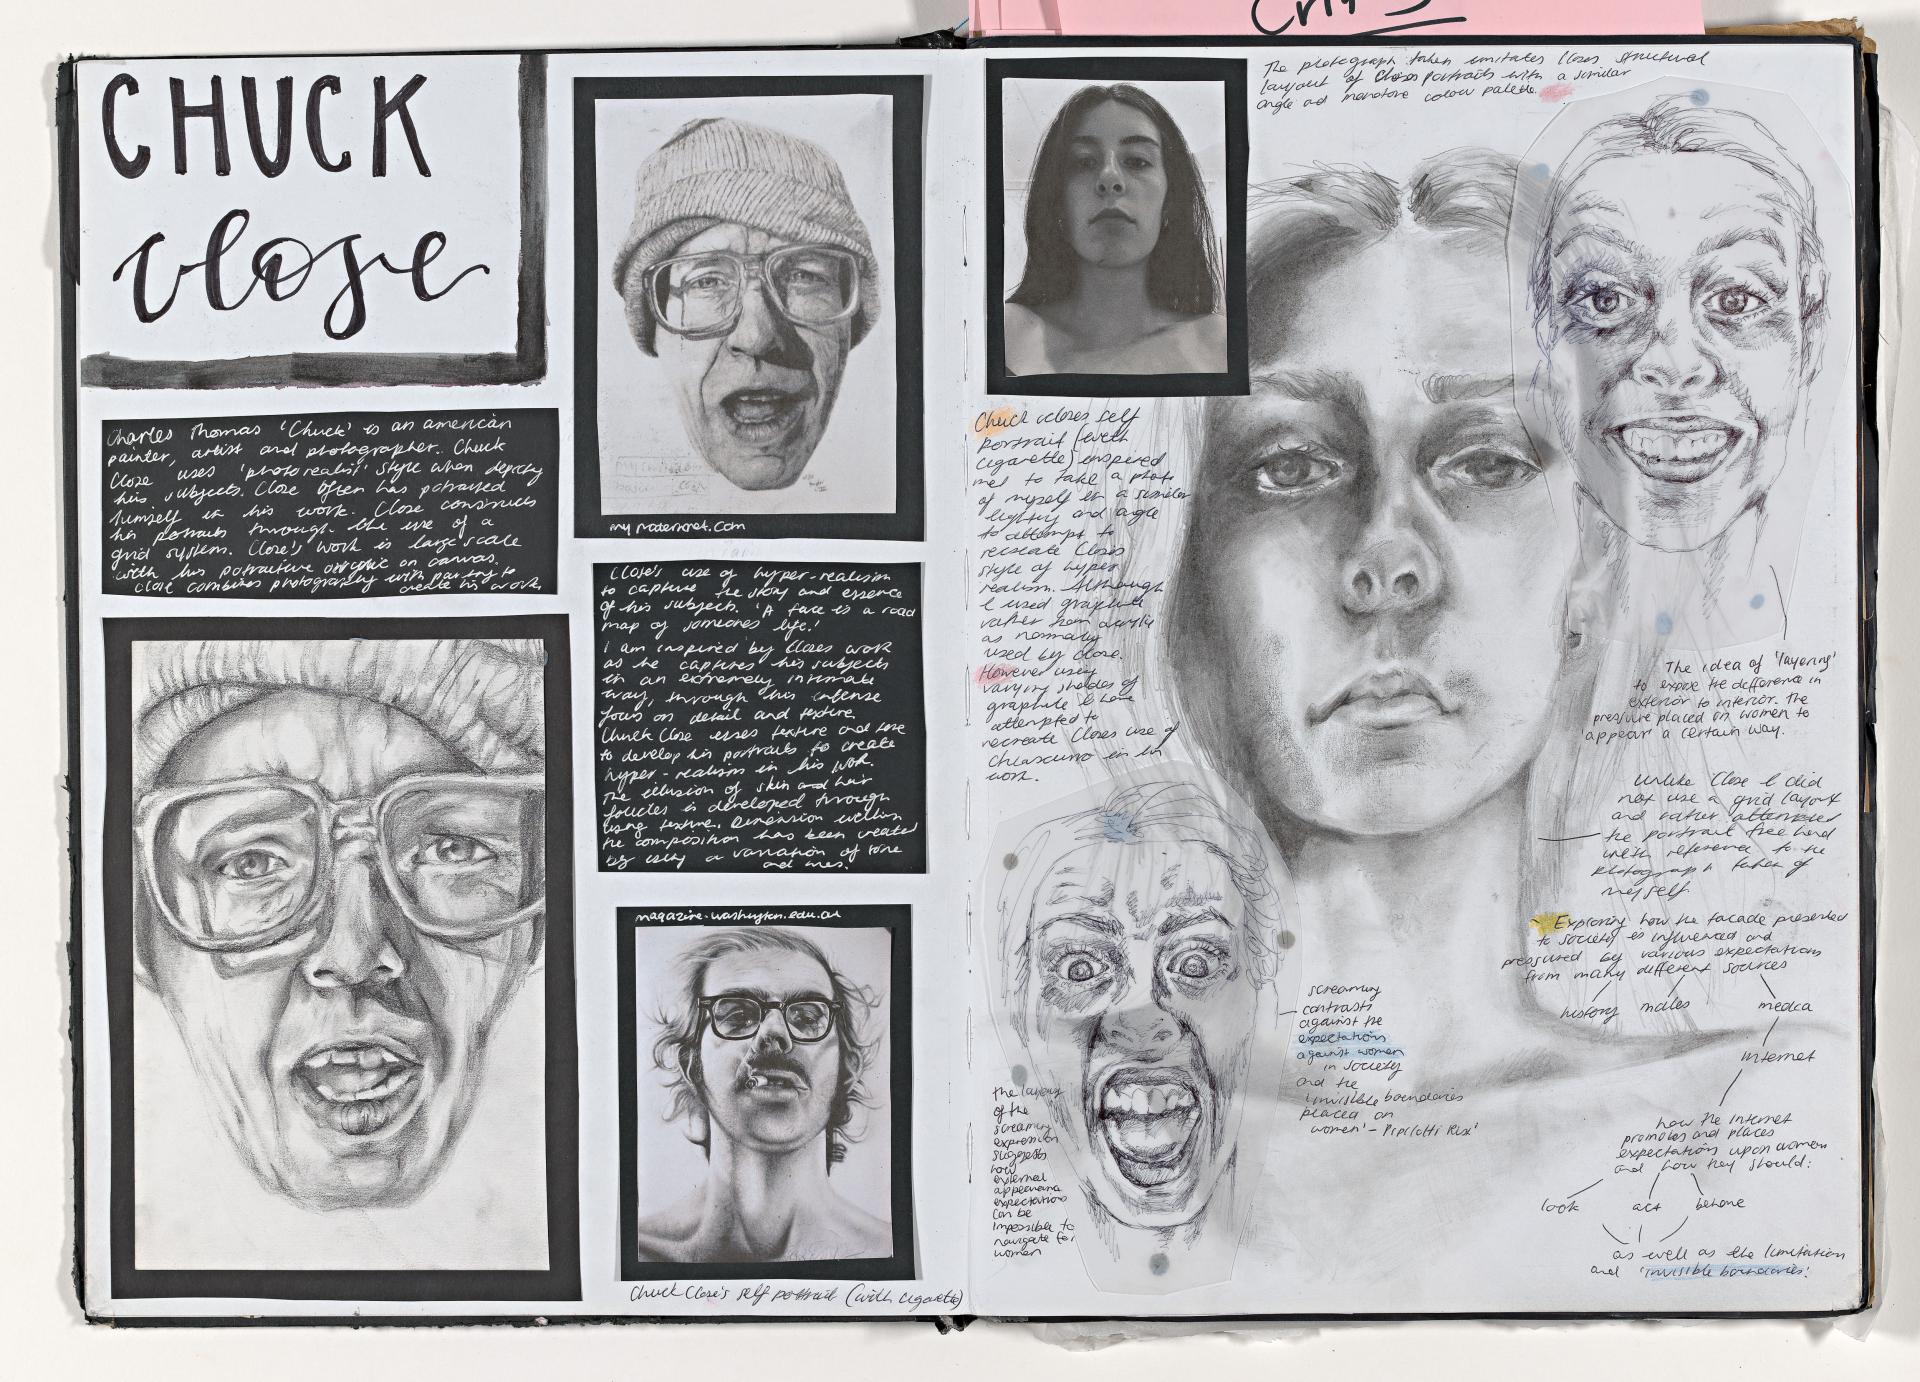 Crit 3
CHUCK
close
Charles Thomas 'Chuck' is an american
painter, artist and photographer. Chuck
Close uses 'photorealist' style when depicting
his subjects. Close often has potraited
himself in his work. Close constructs
his portraits through the use of a
grid system. Close's work is large scale
with his potraiture on canvas.
Close combines photography with painting to
create his work.
mymodernmet.com
Close's use of hyper-realism
to capture the story and essence
of his subjects. 'A face is a road
map of someones life.'
I am inspired by Closes work
as he captures his subjects
in an extremely intimate
way, through his intense
focus on detail and texture.
Chuck Close uses texture and tone
to develop his portraits to create
hyper-realism in his work.
The illusion of skin and hair
folicles is developed through
using texture. Dimension within
the composition has been created
by using a variation of tone
and lines.
magazine.washington.edu.au
Chuck Close's self portrait (with cigarette)
The photograph taken imitates Closes structural
layout of Closes portraits with a similar
angle and monotone colour palette.
Chuck closes self
portrait (with
cigarette) inspired
me to take a photo
of myself in a similar
lighting and angle
to attempt to
recreate Closes
style of hyper
realism. Although
I used graphite
rather than acrylic
as normally
used by Close.
However using
varying shades of
graphite I have
attempted to
recreate Closes use of
Chiascuro in his
work.
The idea of 'layering'
to expose the difference in
exterior to interior. The
pressure placed on women to
'appear' a certain way.
Unlike Close I did
not use a grid layout
and rather attempted
the portrait free hand
with reference to the
photograph taken of
myself.
Exploring how the facade presented
to society is influenced and
pressured by various expectations
from many different sources
history males media
internet
how the internet
promotes and places
expectations upon women
and how they should:
look act behave
as well as the limitation
and 'invisible boundaries'.
screaming
contrasts
against the
expectations
against women
in society
and the
'invisible boundaries
placed on
women' - Pipilotti Rist
the layering
of the
screaming
expression
suggests
how
external
appearance
expectations
can be
impossible to
navigate for
women